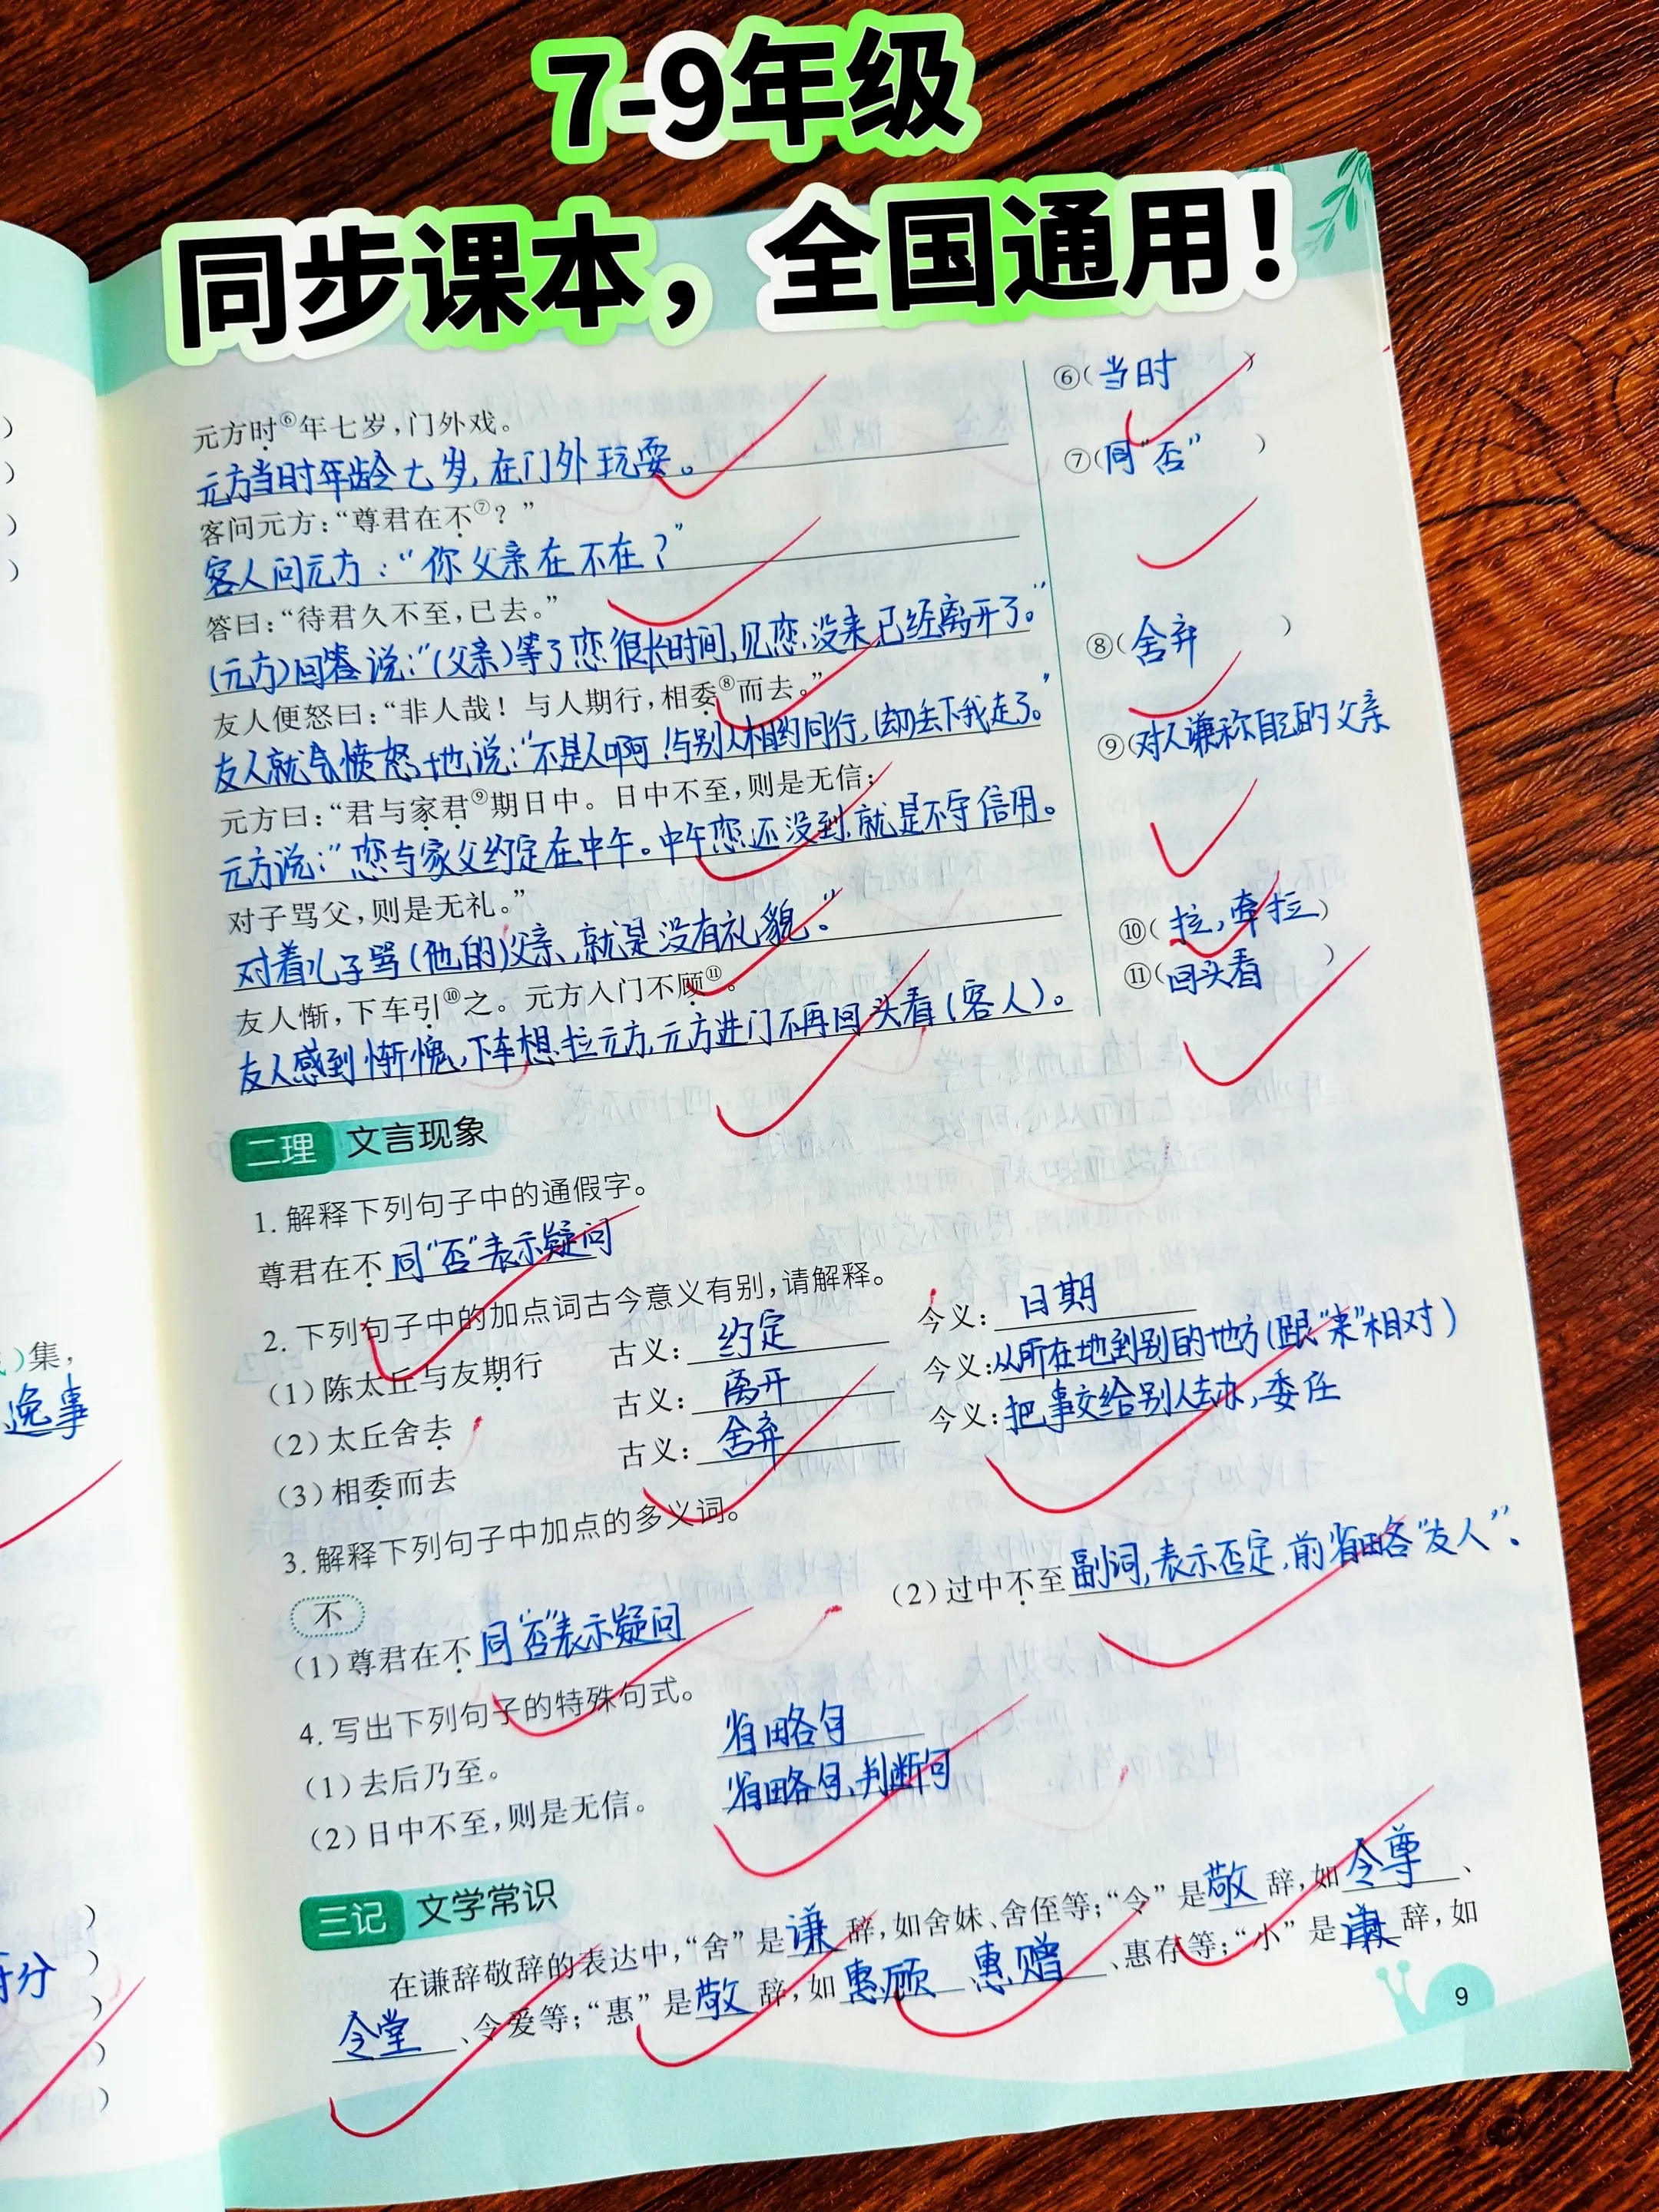 7-9年级
同步课本，全国通用！
元方时⑥年七岁，门外戏。
元方当时年龄七岁，在门外玩耍。
客问元方：“尊君在不⑦？”
客人问元方：“你父亲在不在？”
答曰：“待君久不至，已去。”
(元方)回答说：“(父亲)等了您很长时间，见您没来已经离开了。”
友人便怒曰：“非人哉！与人期行，相委⑧而去。”
友人就愤怒地说：“不是人啊！与别人相约同行，(却)丢下我走了。”
元方曰：“君与家君⑨期日中。日中不至，则是无信；
元方说：“您与家父约定在中午。中午您还没到，就是不守信用。
对子骂父，则是无礼。”
对着儿子骂(他的)父亲，就是没有礼貌。”
友人惭，下车引⑩之。元方入门不顾⑪。
友人感到惭愧，下车想拉元方，元方进门不再回头看(客人)。
⑥(当时)
⑦(同“否”)
⑧(舍弃)
⑨(对人谦称自己的父亲
⑩(拉，牵拉)
⑪(回头看)
二理 文言现象
1. 解释下列句子中的通假字。
尊君在不 同“否”表示疑问
2. 下列句子中的加点词古今意义有别，请解释。
(1)陈太丘与友期行 古义：约定 今义：日期
(2)太丘舍去 古义：离开 今义：从所在地到别的地方(跟“来”相对)
(3)相委而去 古义：舍弃 今义：把事交给别人去办，委任
3. 解释下列句子中加点的多义词。
不
(1)尊君在不 同“否”表示疑问
(2)过中不至 副词，表示否定，前省略“友人”。
4. 写出下列句子的特殊句式。
(1)去后乃至。 省略句
(2)日中不至，则是无信。 省略句、判断句
三记 文学常识
在谦辞敬辞的表达中，“舍”是谦辞，如舍妹、舍侄等；“令”是敬辞，如令尊、
令堂、令爱等；“惠”是敬辞，如惠顾、惠赠、惠存等；“小”是谦辞，如
9
)集，
逸事